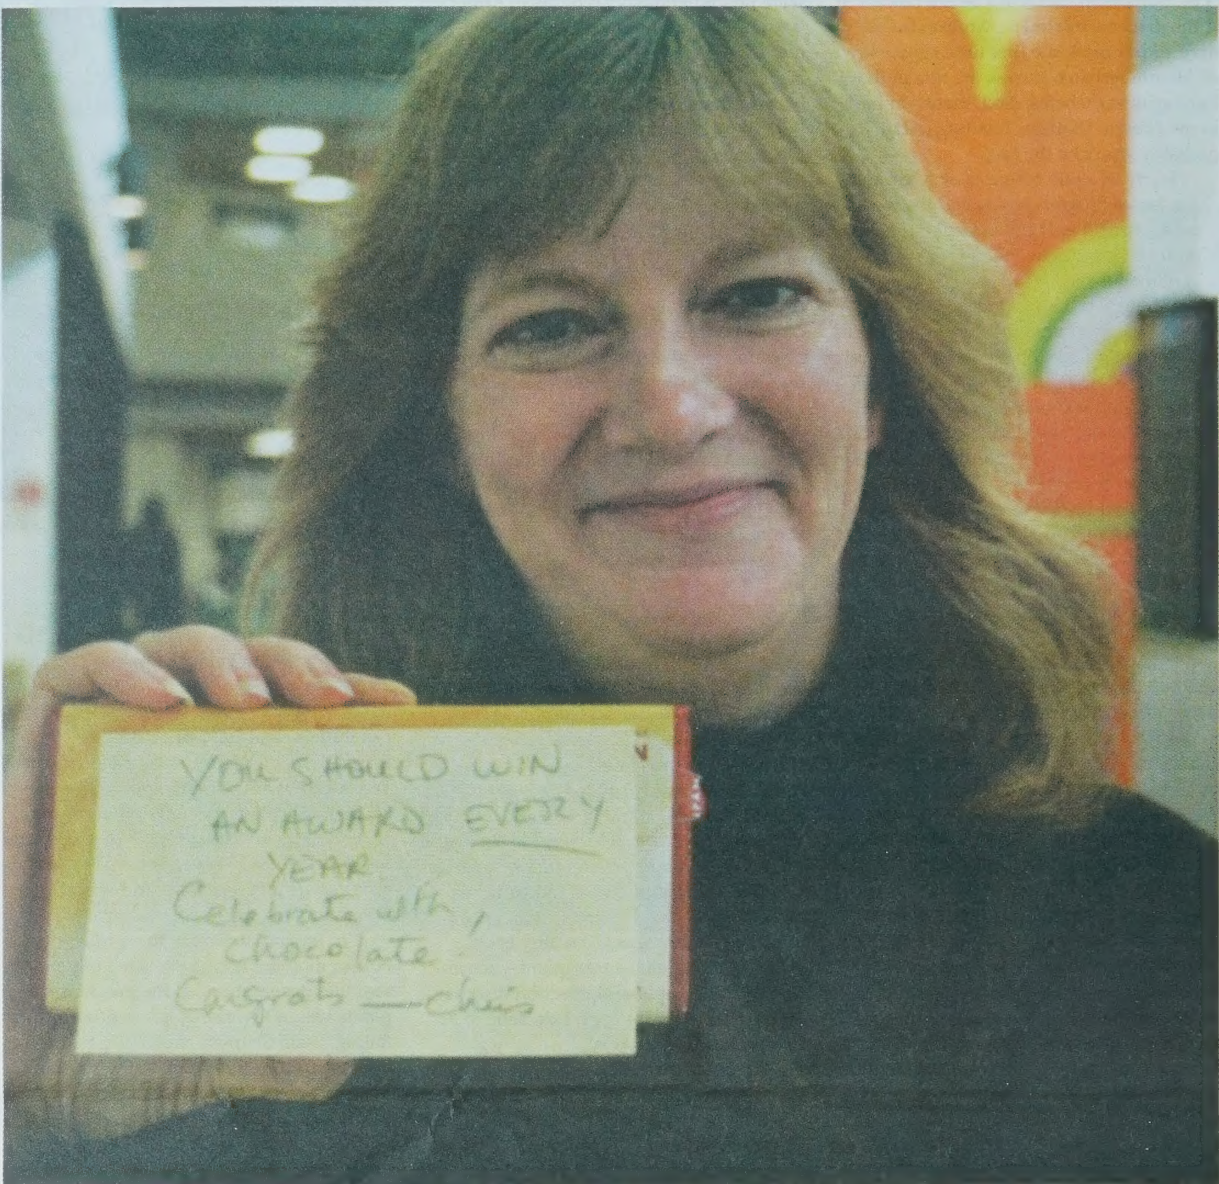 YOU SHOULD WIN
AN AWARD EVERY
YEAR
Celebrate with,
chocolate.
Congrats — Chris